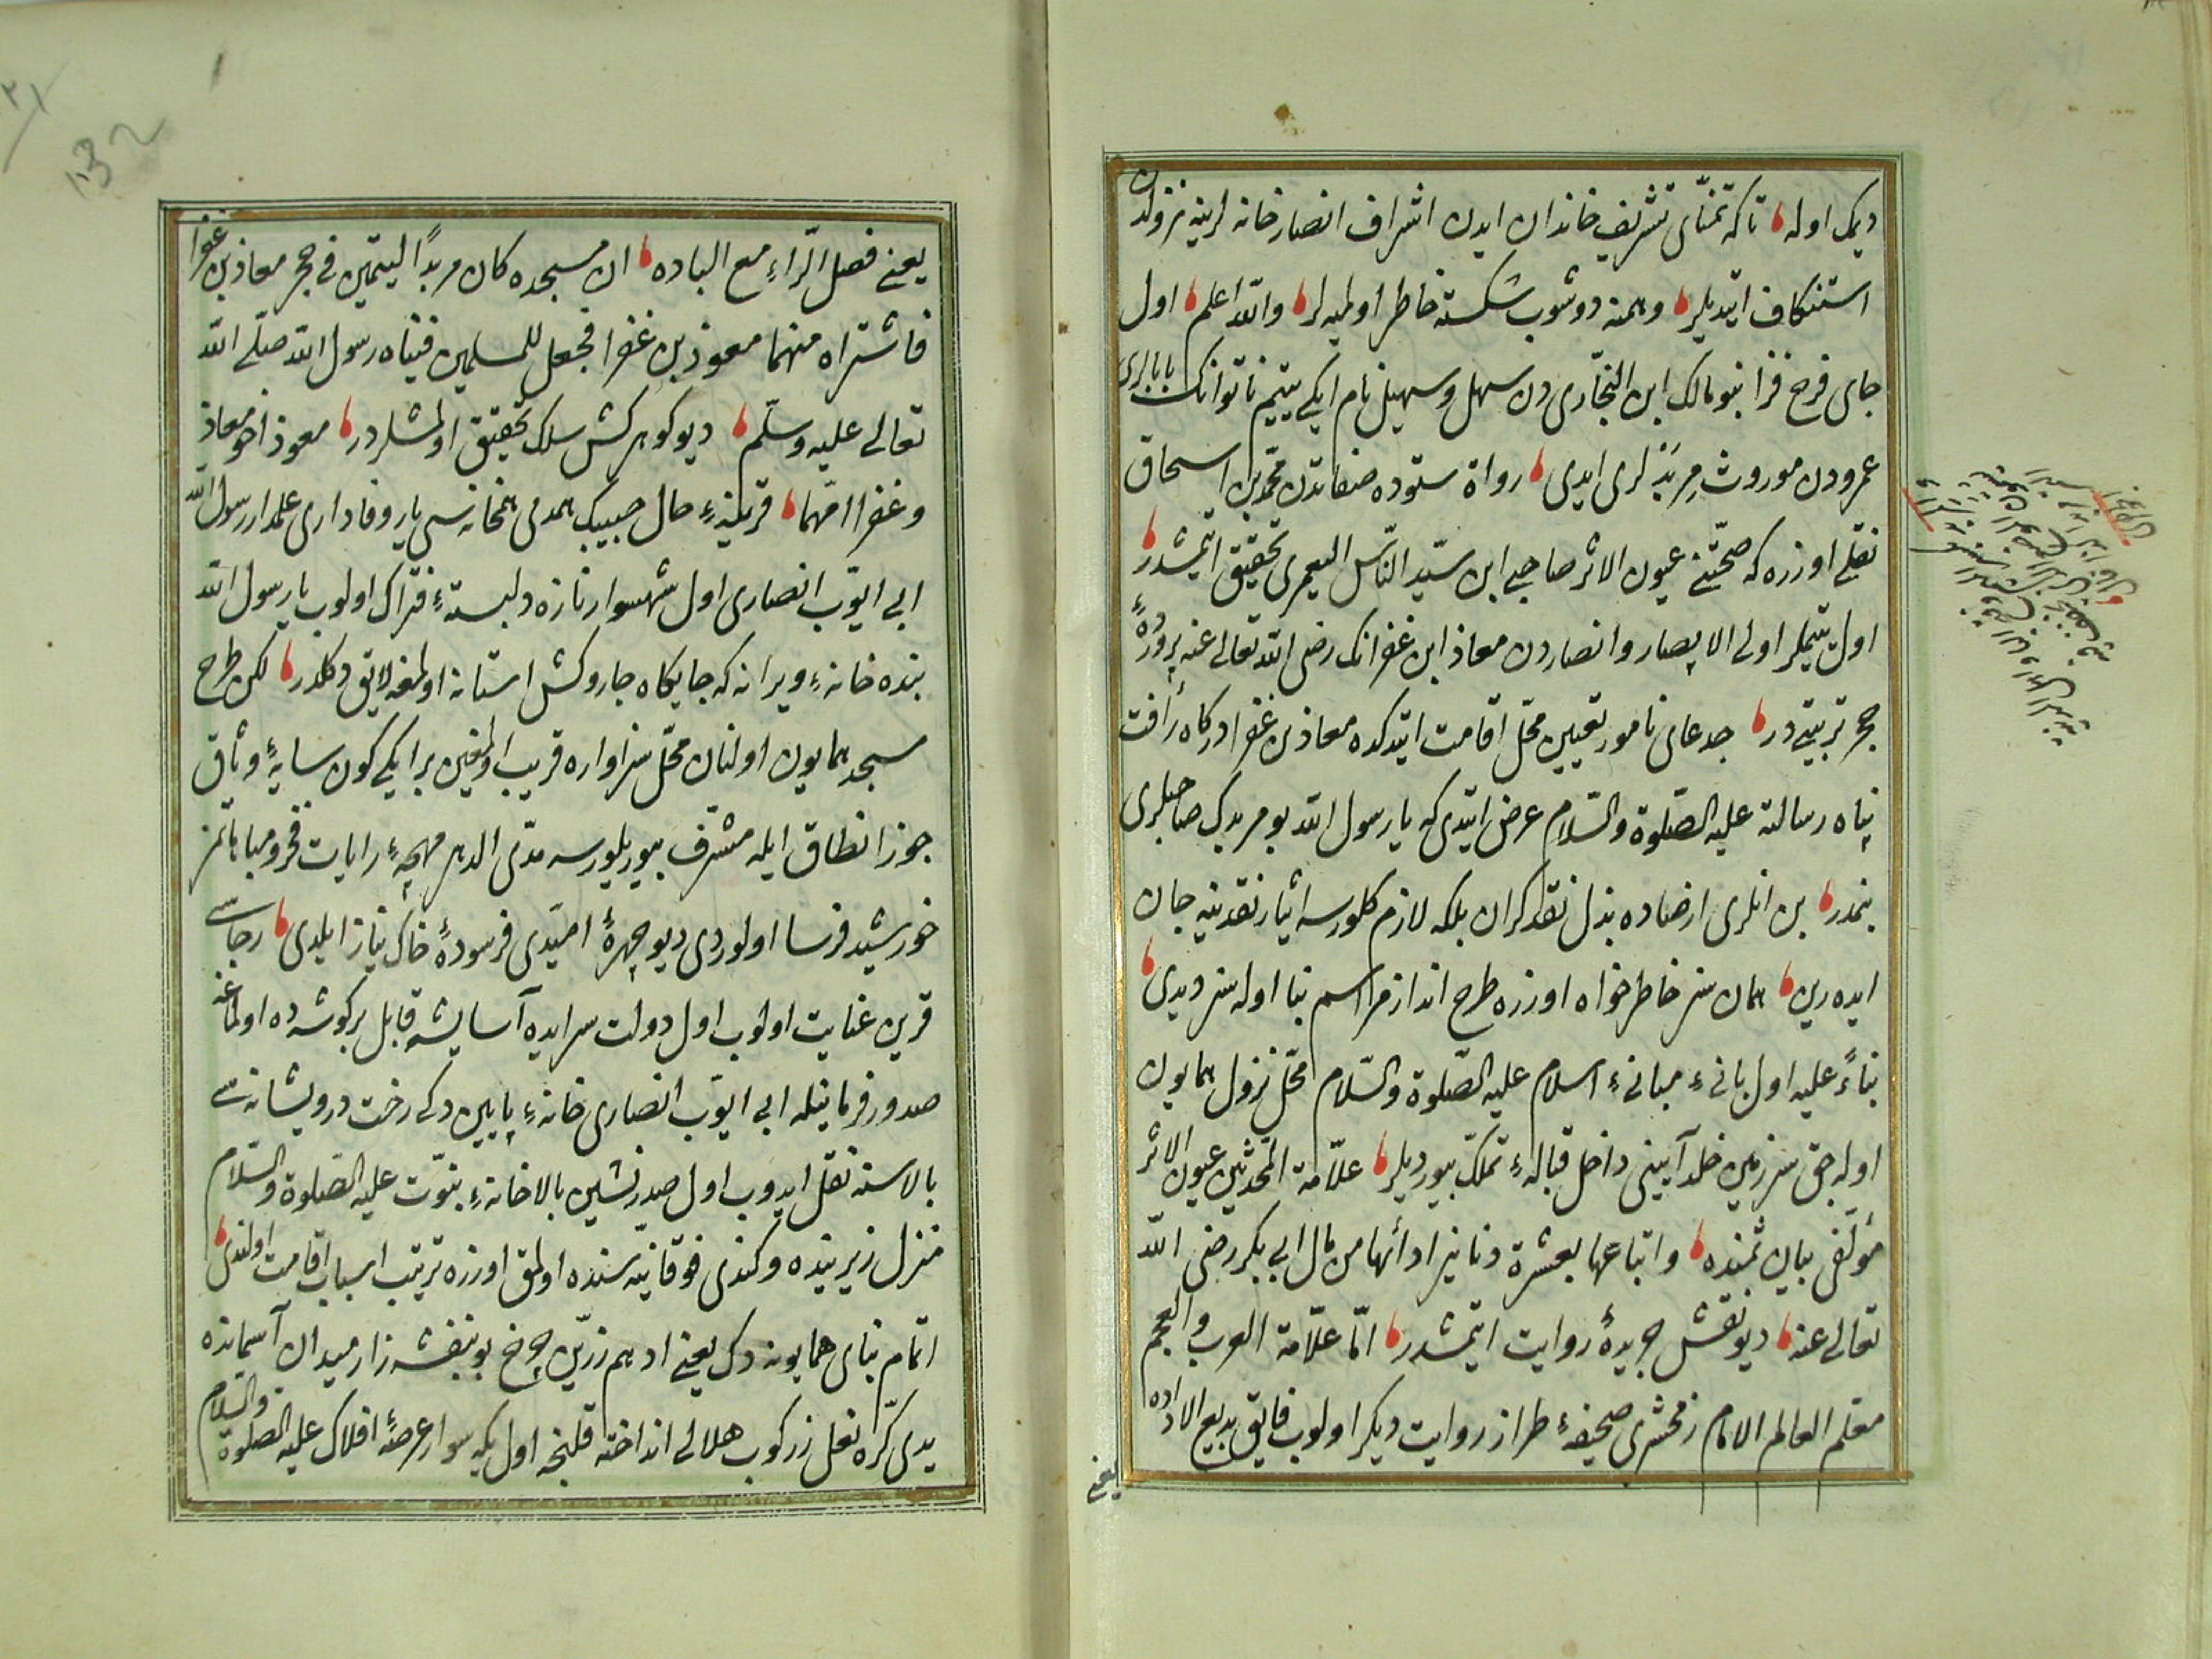 دیمك اوله تا كه تمنّای تشریف خاندان ایدن اشراف انصار خانه لرینه نزولدن
استنكاف ایتدیلر وهمنه دوشوب شكسته خاطر اولمیه لر والله اعلم اول
جای فرح فزا بنو مالك ابن النجّاری دن سهل وسهیل نام ایكی یتیم ناتوانك بابالری
عمرودن موروث مِربَدْ لری ایدی رواة ستوده صفاتدن محمّد بن اسحاق
نقلی اوزره كه صحّتنی عیون الاثر صاحبی ابن سیّد النّاس الیعمری تحقیق ایتمشدر
اول یتیملر اولی الابصار وانصاردن معاذ ابن غفرانك رضی الله تعالی عنه پروردهٔ
حجر تربیتی در جدعای نامور تعیین محلّ اقامت ایتدكده معاذ بن غفرا درگاه رأفت
پناه رسالته علیه الصّلوة والسّلام عرض ایتدی كه یا رسول الله بو مربدك صاحبلری
بنمدر بن انلری ارضاده بذل نقد كران بلكه لازم كلورسه ایثار نقدینه جان
ایده رین همان سز خاطر خواه اوزره طرح انداز مراسم بنا اوله سز دیدی
بناءً علیه اول بانیء مبانیء اسلام علیه الصّلوة والسّلام محلّ نزول همایون
اوله جق سرزمین خلد آیینی داخل قبالهء تملّك بیوردیلر علّامة المحدّثین عیون الاثر
مؤلّفی بیان ثمنده وابتاعها بعشرة دنانیر ادائها من مال ابی بكر رضی الله
تعالی عنه دیو نقش جریدهٔ روایت ایتمشدر امّا علّامة العرب والعجم
معلم العالم الامام زمخشری صحیفهء طراز روایت دیكر اولوب فایق بدیع الاداده
یعنی
یعنی فصل الرّاءِ مع الباده ان مسجده كان مربدًا لیتیمین فی حجر معاذ بن غفرا
فاشتراه منهما معوذ بن غفرا فجعل للمسلمین فبناه رسول الله صلّی الله
تعالی علیه وسلّم دیو كوهر كش سلك تحقیق اولمشلردر معوذ اخو معاذ
وغفرا امّهما قرینهء حال حبیبك همدمی همخانه سی یار وفاداری علمدار رسول الله
ابی ایّوب انصاری اول شهسوار نازه دلبستهء فتراك اولوب یا رسول الله
بنده خانهء ویرانه كه جایكاه جاروكش استانه اولمغه لایق دكلدر لكن طرح
مسجد همایون اولنان محلّ سزاواره قریب اولمغین بر ایكی كون سایهٔ وثاق
جوزا نطاق ایله مشرّف بیوریلورسه مدّی الدهر مهچهء رایات فخر ومباهاتمز
خورشید فرسا اولوردی دیو چهرهٔ امیّدی فرسودهٔ خاك نیاز ایلدی رجاسی
قرین عنایت اولوب اول دولت سرایده آسایشه قابل بر كوشه ده اولماغه
صدور فرمانیله ابی ایّوب انصاری خانهء پایین دكی رخت درویشانه سی
بالاسنه نقل ایدوب اول صدر نشین بالاخانهء نبوّت علیه الصّلوة والسّلام
منزل زیرینده وكندی فوقانیّه سنده اولمق اوزره ترتیب اسباب اقامت اولندی
اتمام بنای همایونه دك یعنی ادهم زرّین چرخ بو بنفشه زار میدان آسمانده
یدی كرّه نعل زركوب هلالی انداخته قلنجه اول یكه سوار عرصهٔ افلاك علیه الصّلوة والسّلام